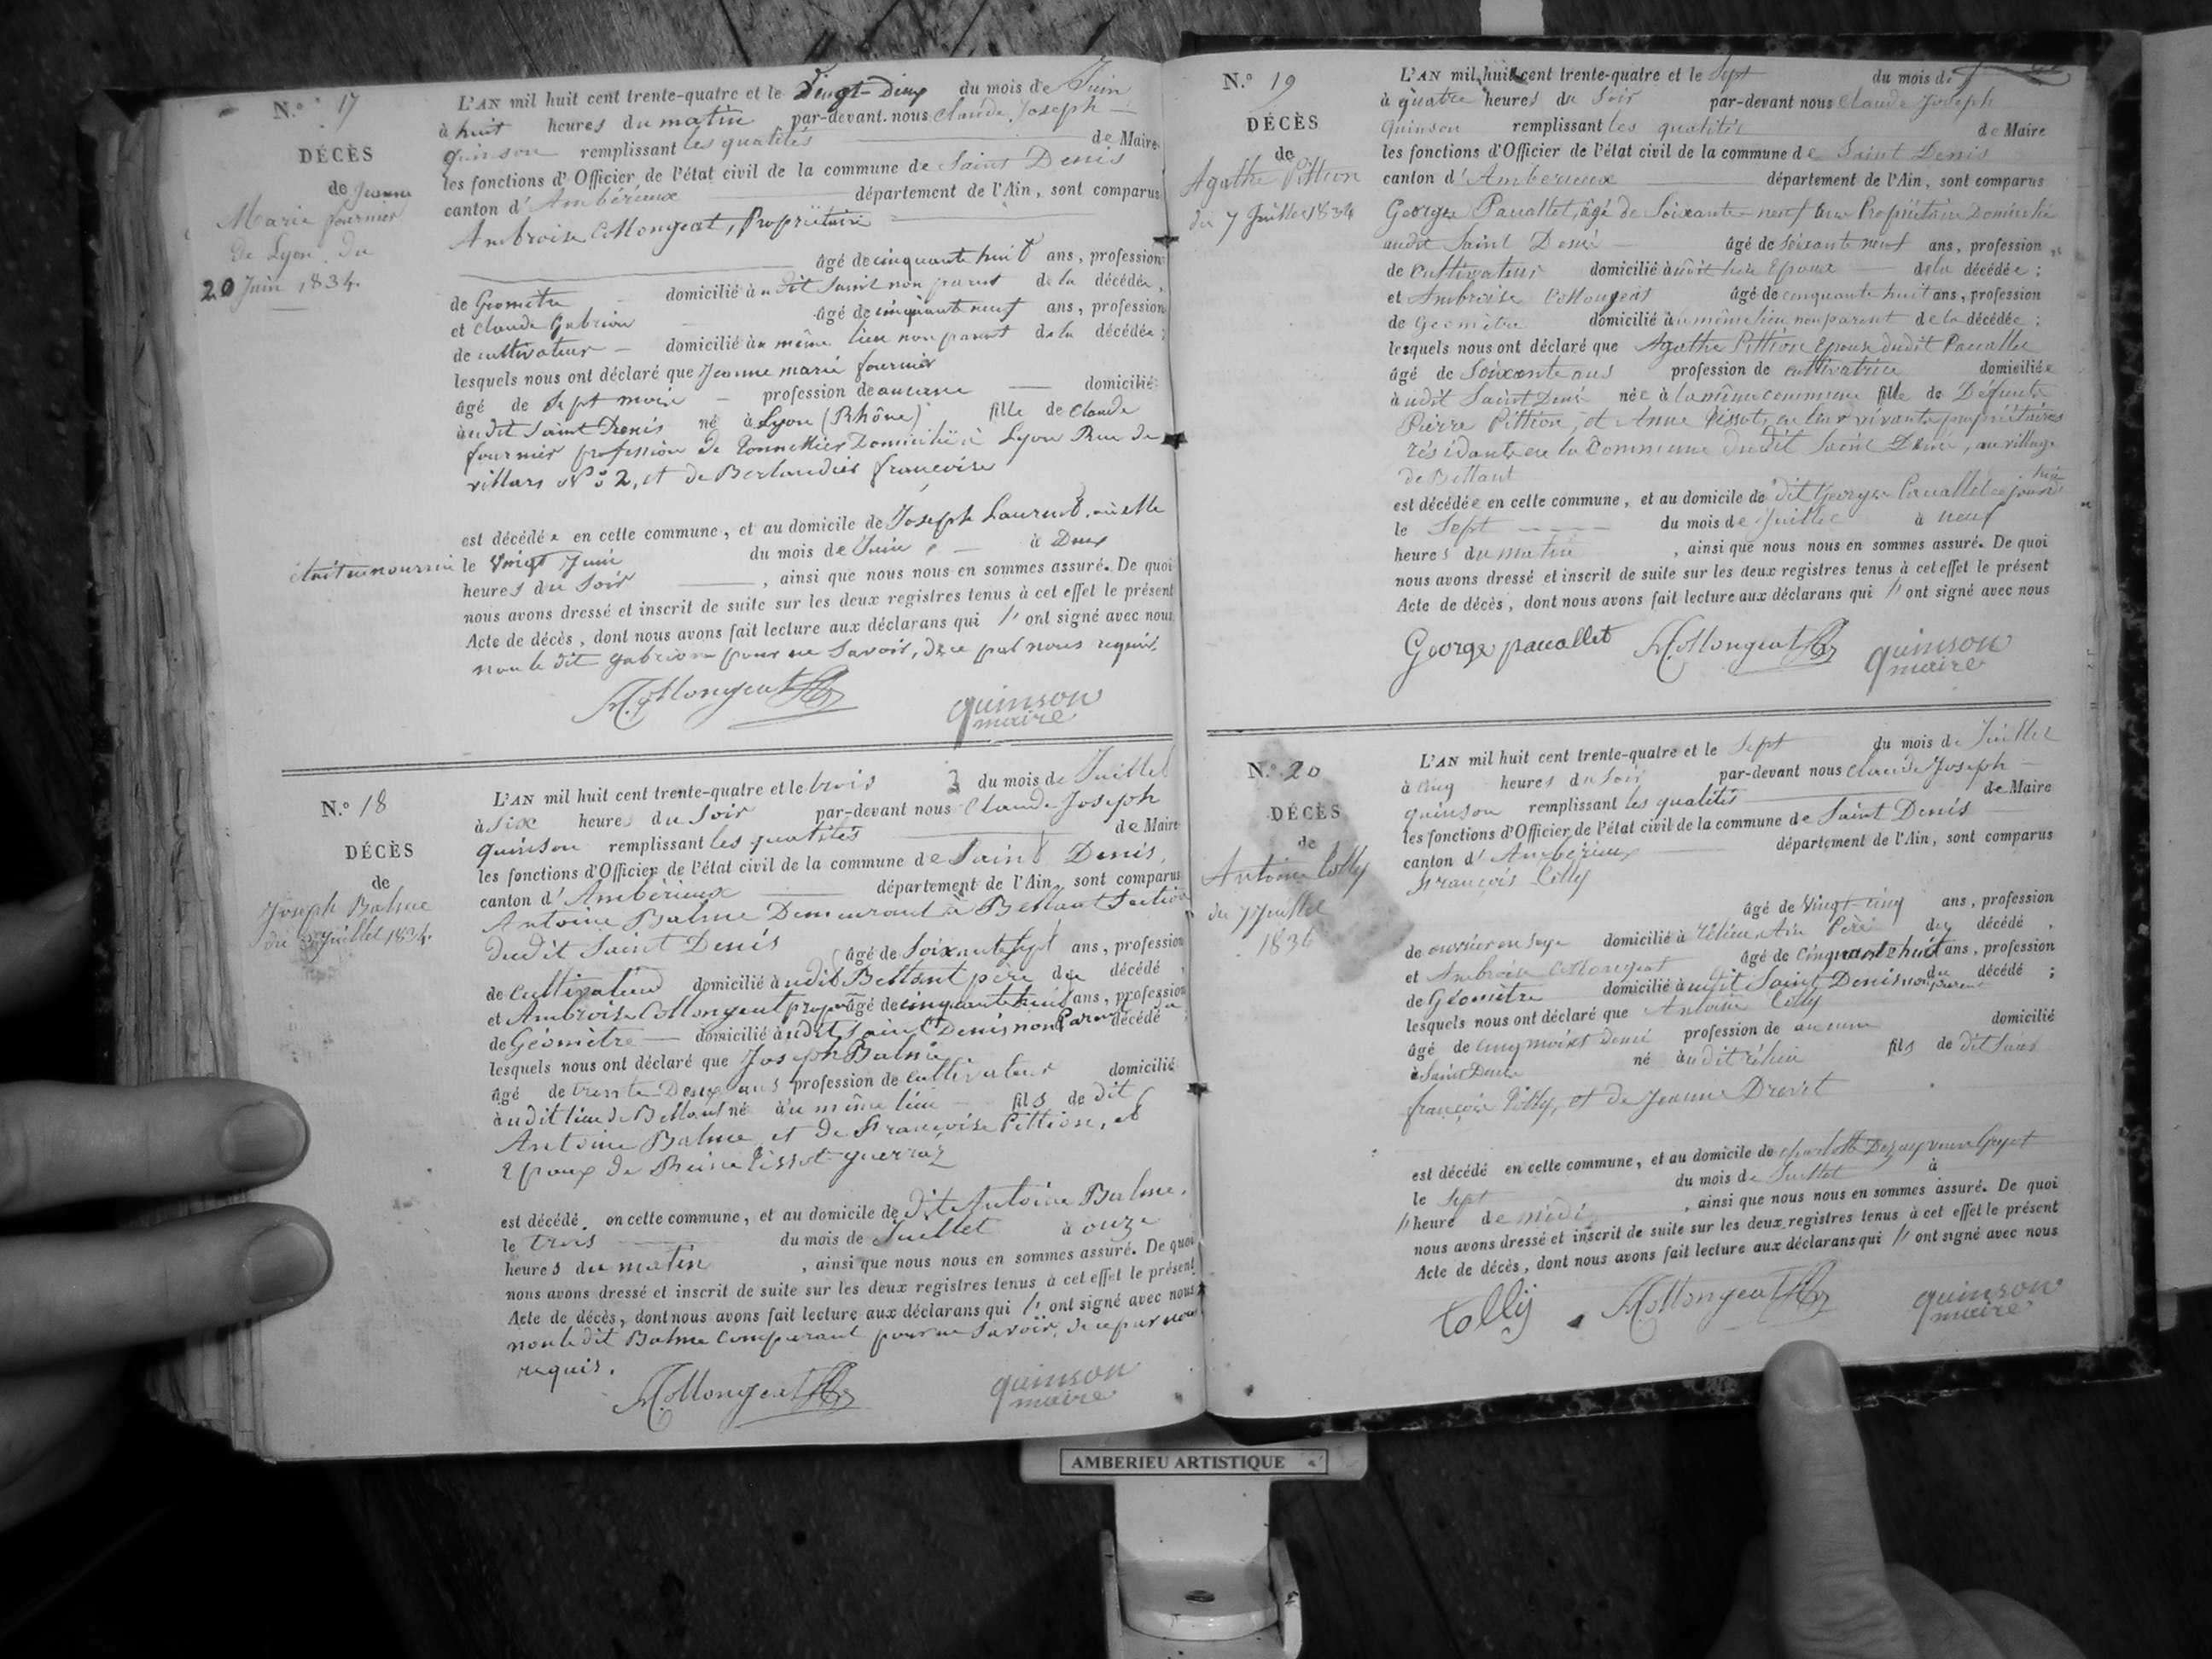 N.° 17
DÉCÈS
de Jeanne
Marie fournier
De Lyon, du
20 Juin 1834.
L'AN mil huit cent trente-quatre et le Vingt-Deux du mois de Juin
à huit heures du matin par-devant nous Claude Joseph
quinson remplissant les qualités de Maire
les fonctions d'Officier de l'état civil de la commune de Saint Denis
canton d'Ambérieux département de l'Ain, sont comparus
Ambroise Collongeat, Propriétaire
âgé de cinquante huit ans, profession
de Géomètre domicilié à udit Saint non parent de la décédée,
et Claude Gabrion âgé de cinquante neuf ans, profession
de cultivateur domicilié à u même lieu non parent de la décédée ;
lesquels nous ont déclaré que Jeanne marie fournier
âgé de sept mois profession de aucune domicilié
à udit Saint Denis né à Lyon (Rhône) fille de Claude
fournier profession de Domicilié à Lyon Rue de
villars N° 2, et de françoise
est décédée en cette commune, et au domicile de Joseph Laurent, où elle
était en nourrice le Vingt Juin du mois de Juin à Deux
heures du Soir, ainsi que nous nous en sommes assuré. De quoi
nous avons dressé et inscrit de suite sur les deux registres tenus à cet effet le présent
Acte de décès, dont nous avons fait lecture aux déclarans qui ont signé avec nous
non le dit gabrion pour ne Savoir, de ce par nous requis.
A. Collongeat
quinson
maire
N.° 18
DÉCÈS
de
Joseph Balme
du 3 Juillet 1834.
L'AN mil huit cent trente-quatre et le trois 3 du mois de Juillet
à Six heures du Soir par-devant nous Claude Joseph
quinson remplissant les qualités de Maire
les fonctions d'Officier de l'état civil de la commune de Saint Denis,
canton d'Ambérieux département de l'Ain, sont comparus
Antoine Balme Demeurant à Bettant Section
dudit Saint Denis âgé de Soixante Sept ans, profession
de Cultivateur domicilié à udit Bettant père du décédé,
et Ambroise Collongeat propre âgé de cinquante huit ans, profession
de Géomètre domicilié à udit Saint Denis non Parent du décédé ;
lesquels nous ont déclaré que Joseph Balme
âgé de trente Deux ans profession de Cultivateur domicilié
à udit lieu de Bettant né à u même lieu fils de dit
Antoine Balme et de Françoise Pittion, et
Epoux de Reine Tissot guerraz
est décédé en cette commune, et au domicile de dit Antoine Balme,
le trois du mois de Juillet à onze
heures du matin, ainsi que nous nous en sommes assuré. De quoi
nous avons dressé et inscrit de suite sur les deux registres tenus à cet effet le présent
Acte de décès, dont nous avons fait lecture aux déclarans qui ont signé avec nous
non le dit Balme Comparant pour ne Savoir, de ce par nous
requis.
A. Collongeat
quinson
maire
N.° 19
DÉCÈS
de
Agathe Pittion
du 7 Juillet 1834
L'AN mil huit cent trente-quatre et le Sept du mois de
à quatre heures du Soir par-devant nous Claude Joseph
Quinson remplissant les qualités de Maire
les fonctions d'Officier de l'état civil de la commune de Saint Denis
canton d'Ambérieux département de l'Ain, sont comparus
George Pauallet, âgé de Soixante-neuf ans Propriétaire Domicilié
audit Saint Denis âgé de soixante neuf ans, profession
de Cultivateur domicilié à udit lieu Epoux de la décédée ;
et Ambroise Collongeat âgé de cinquante huit ans, profession
de Geomètre domicilié à u même lieu non parent de la décédée ;
lesquels nous ont déclaré que Agathe Pittion Epouse dudit Pauallet
âgé de Soixante ans profession de cultivatrice domiciliée
à udit Saint Denis née à la même commune fille de Défunts
Pierre Pittion, et Anne Tissot, en leur vivants propriétaires
résidants en la Commune dudit Saint Denis, au village
de Bettant
est décédée en cette commune, et au domicile de dit George Pauallet
le Sept du mois de Juillet à neuf
heures du matin, ainsi que nous nous en sommes assuré. De quoi
nous avons dressé et inscrit de suite sur les deux registres tenus à cet effet le présent
Acte de décès, dont nous avons fait lecture aux déclarans qui ont signé avec nous
George pauallet A. Collongeat quinson
maire
N.° 20
DÉCÈS
de
Antoine Colly
du 7 Juillet
1834
L'AN mil huit cent trente-quatre et le Sept du mois de Juillet
à cinq heures du Soir par-devant nous Claude Joseph
quinson remplissant les qualités de Maire
les fonctions d'Officier de l'état civil de la commune de Saint Denis
canton d'Ambérieux département de l'Ain, sont comparus
François Colly
âgé de Vingt-cinq ans, profession
de ouvrier en soye domicilié à Ain Père du décédé,
et Ambroise Collongeat âgé de Cinquante huit ans, profession
de Géomètre domicilié à udit Saint Denis non parent du décédé ;
lesquels nous ont déclaré que Antoine Colly
âgé de cinq mois et Demi profession de aucune domicilié
à Saint Denis né à udit fils de dit
françois Colly, et de Jeanne
est décédé en cette commune, et au domicile de charlotte veuve
le Sept du mois de Juillet à
heure de midi, ainsi que nous nous en sommes assuré. De quoi
nous avons dressé et inscrit de suite sur les deux registres tenus à cet effet le présent
Acte de décès, dont nous avons fait lecture aux déclarans qui ont signé avec nous
Colly A. Collongeat quinson
maire
AMBERIEU ARTISTIQUE